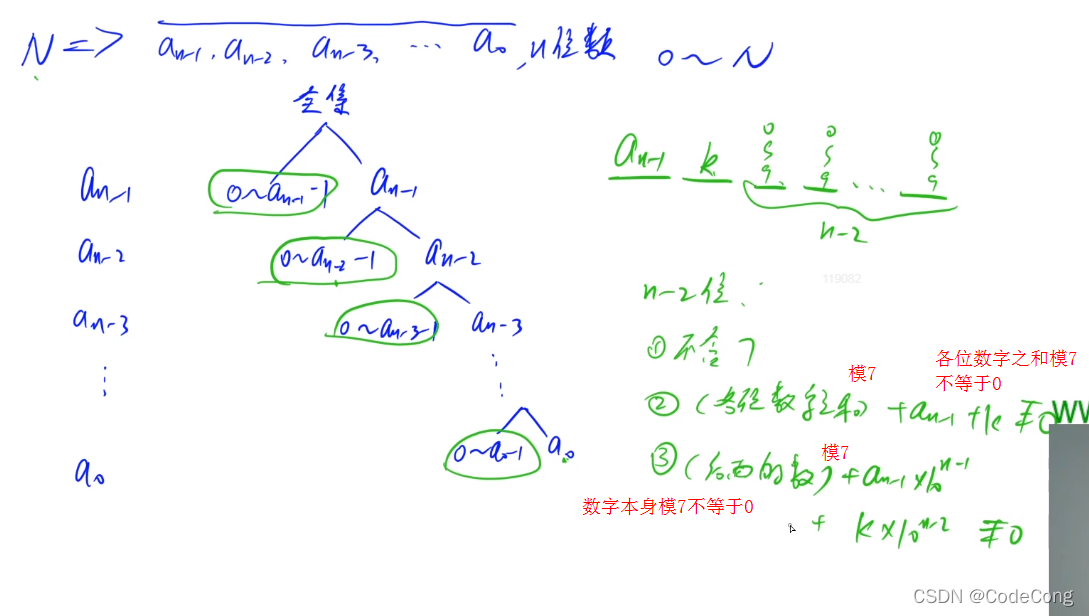 N => aₙ₋₁, aₙ₋₂, aₙ₋₃, … a₀, n位数 0~N
全集
aₙ₋₁ 0~aₙ₋₁-1 aₙ₋₁
aₙ₋₂ 0~aₙ₋₂-1 aₙ₋₂
aₙ₋₃ 0~aₙ₋₃-1 aₙ₋₃
⋮ ⋮ ⋮
a₀ 0~a₀-1 a₀
aₙ₋₁ k 0~9 0~9 … 0~9
n-2
119082
n-2位:
① 不含7
模7
各位数字之和模7
不等于0
② (各位数字之和) + aₙ₋₁ + k ≢ 0
W
模7
③ (后面的数) + aₙ₋₁×10ⁿ⁻¹
数字本身模7不等于0
+ k×10ⁿ⁻² ≢ 0
CSDN @CodeCong